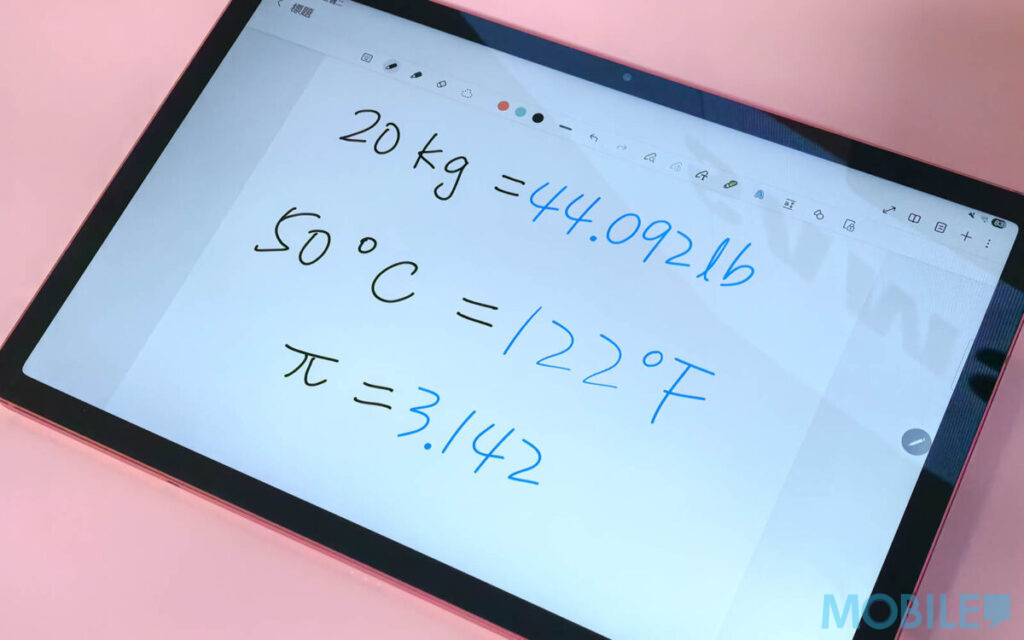 標題
20 kg = 44.092 lb
50 °C = 122 °F
π = 3.142
MOBILE